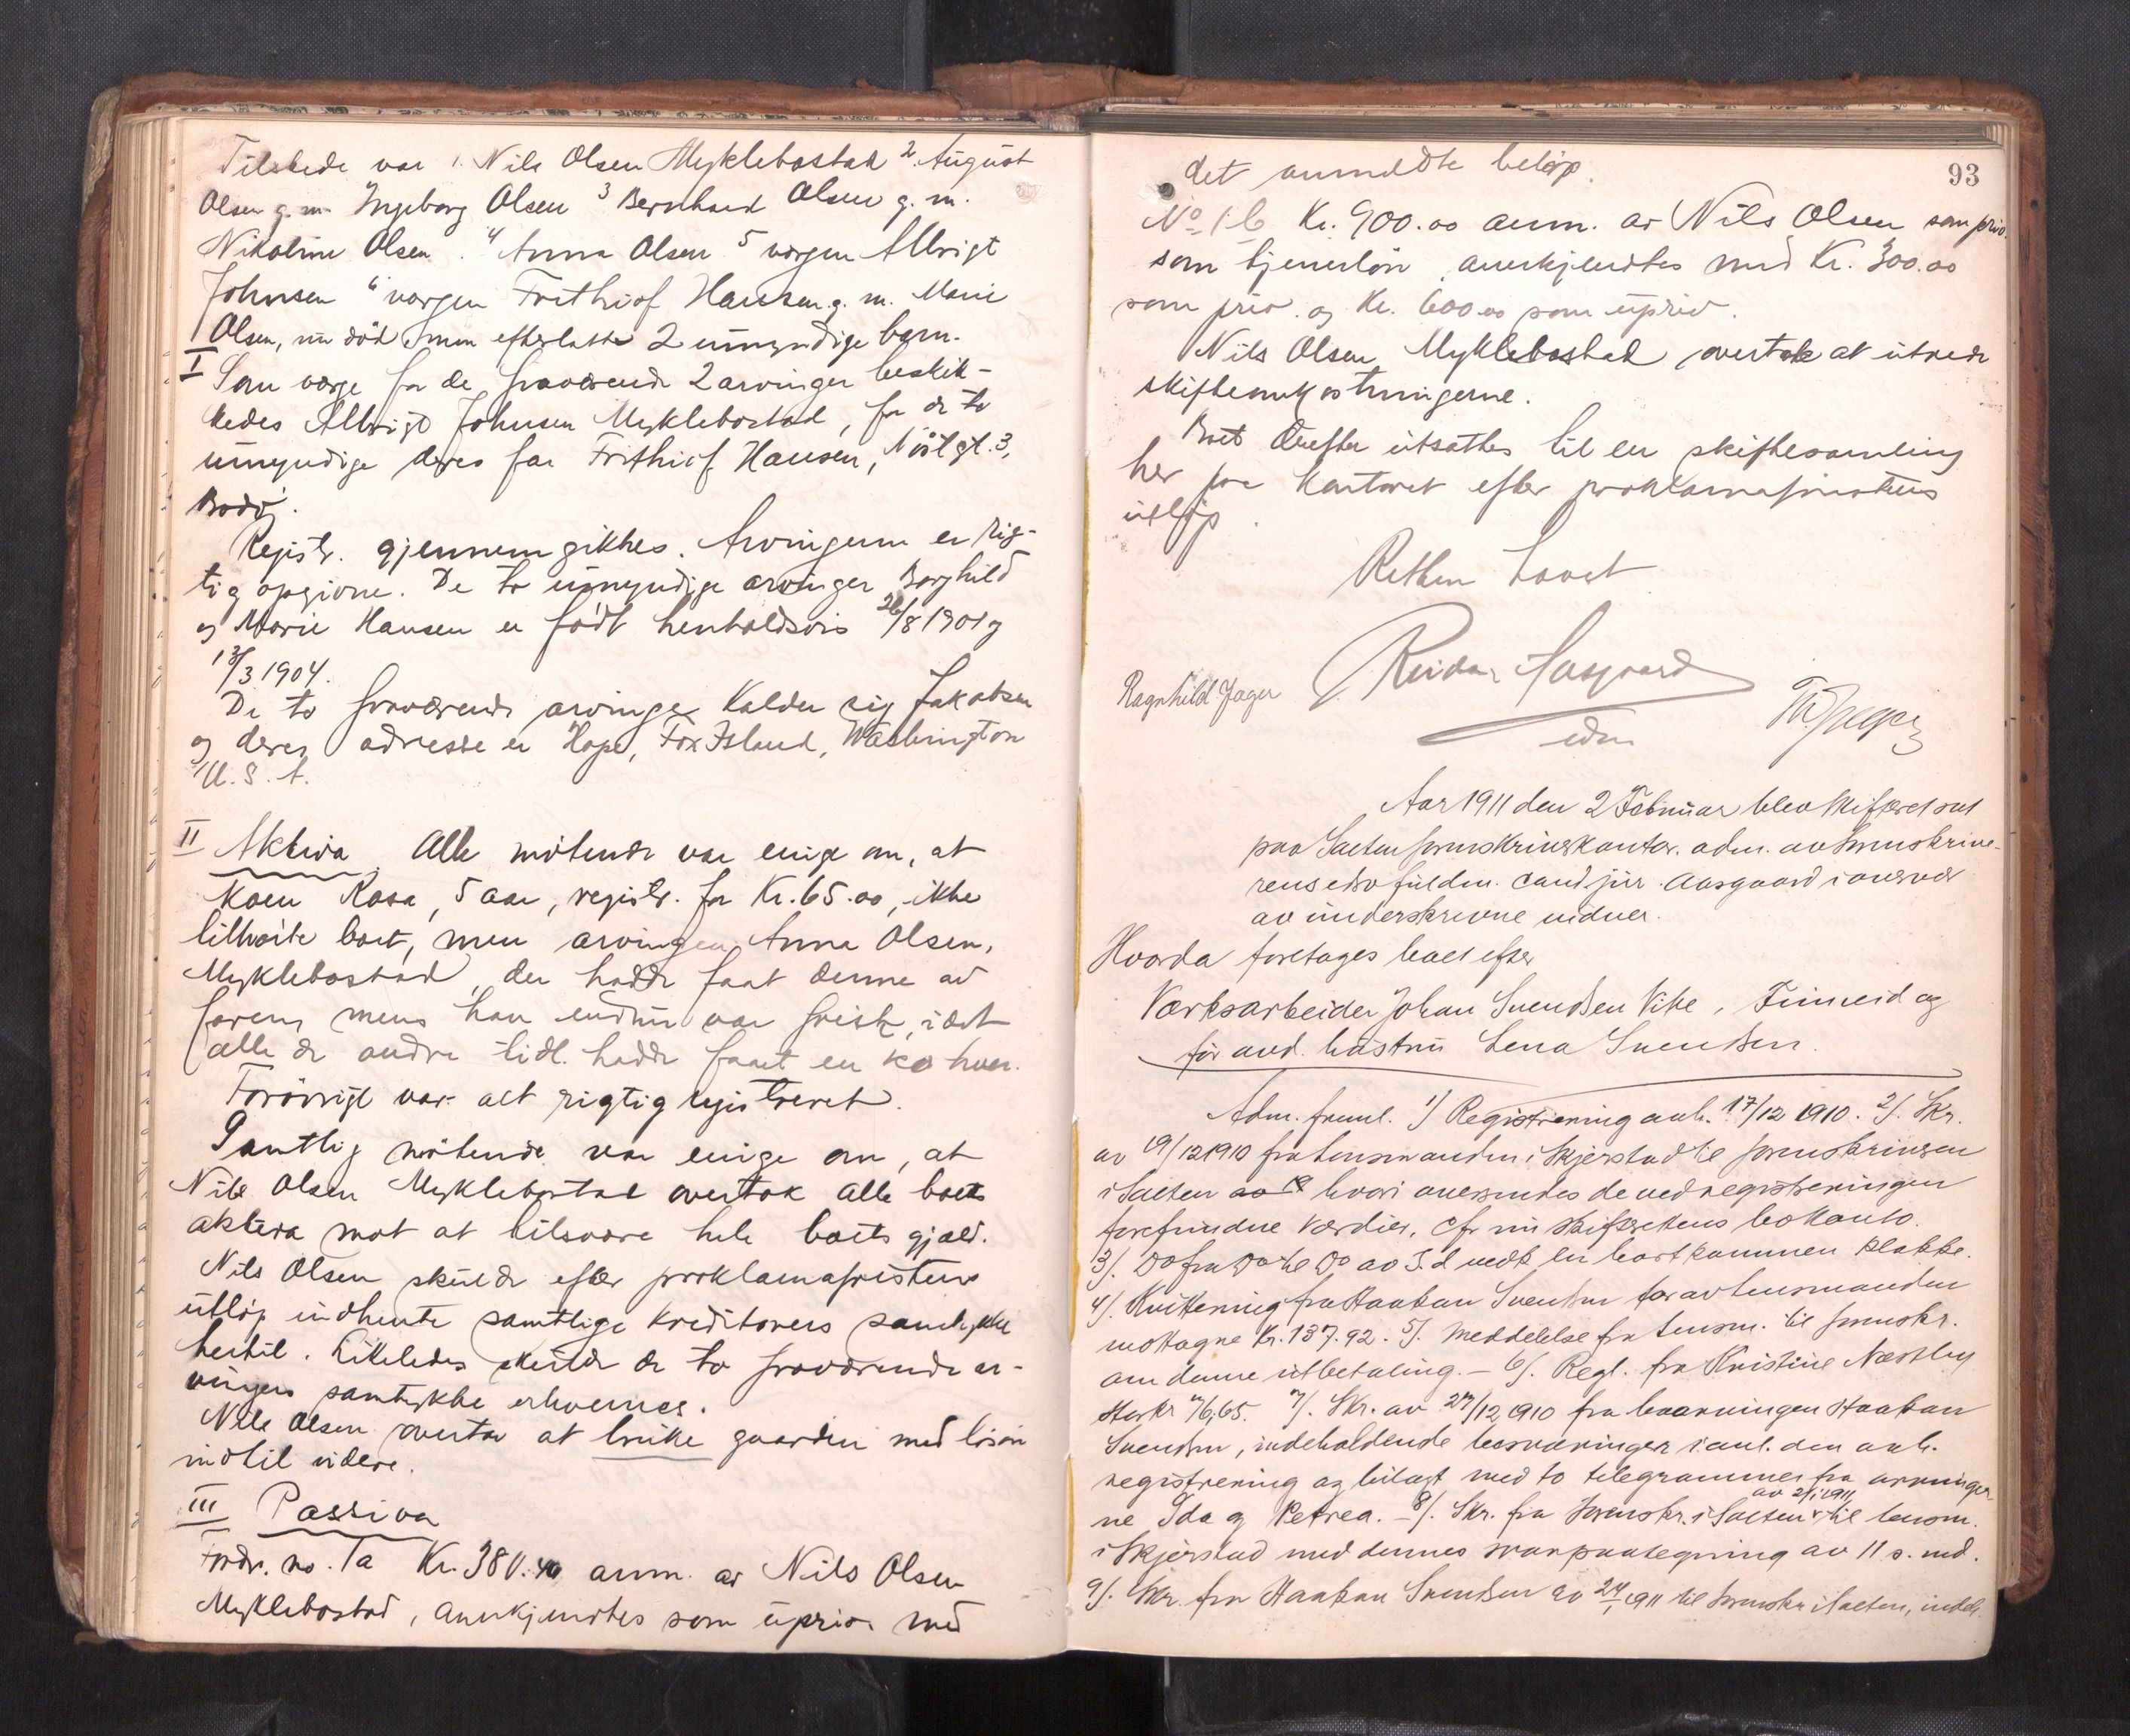 Tilstede var 1. Nils Olsen Myklebostad 2. August
Olsen g. m. Ingeborg Olsen 3 Bernhard Olsen g. m.
Nikoline Olsen. 4 Anna Olsen 5 vergen Albrigt
Johnsen 6 vergen Frithiof Hansen g. m. Marie
Olsen, nu död men efterlatt 2 umyndige barn.
I Som verge for de fraværende 2 arvinger beskik-
kedes Albrigt Johnsen Myklebostad, for de to
umyndige deres far Frithiof Hansen, 3,
Bodö.
Registr. gjennemgikkes. Arvingerne er rig-
tig opgivne. De to umyndige arvinger Borghild
og Marie Hansen er födt henholdsvis 26/8 1901 og
13/3 1904.
De to fraværende arvinger kalder sig Jakobsen
og deres adresse er Hope, Fox Island, Washington
U. S. A.
II Aktiva. Alle mötende var enige om, at
koen Rosa, 5 aar, registr. for Kr. 65.00, ikke
tilhörte boet, men arvingen Anna Olsen,
Myklebostad, der hadde faat denne av
faren mens han endnu var frisk, idet
alle de andre tidl. hadde faaet en ko hver.
Forövrigt var alt rigtig registreret.
Samtlig mötende var enige om, at
Nils Olsen Myklebostad overtok alle boets
aktiva mot at tilsvare hele boets gjæld.
Nils Olsen skulde efter proklamafristens
utlöp indhente samtlige kreditorers samtykke
hertil. Likeledes skulde de to fraværende ar-
vingers samtykke erhverves.
Nils Olsen overtar at bruke gaarden med
indtil videre.
III Passiva
Fordr. no. 1a Kr. 380.40 anm. av Nils Olsen
Myklebostad, anerkjendtes som upriv. med
93
det anmeldte belöp.
No 1b Kr. 900.00 anm. av Nils Olsen som priv.
som tjenerlön, anerkjendtes med Kr. 300.00
som priv. og Kr. 600.00 som upriv.
Nils Olsen Myklebostad overtok at utrede
skifteomkostningerne.
Boet derefter utsattes til en skiftesamling
her paa kontoret efter proklamafristens
utlöp.
Retten hævet
Reidar Aasgaard
Ragnhild Jager
edm
Aar 1911 den 2 Februar blev skifteret sat
paa Salten sorenskriverkontor. adm. av sorenskrive-
rens edsv. fuldm. cand. jur. Aasgaard i overvær
av underskrevne vidner.
Hvorda foretages boet efter
Verksarbeider Johan Svendsen Vike, Finneid og
før avd. hustru Lena Svendsen.
Adm. freml. 1/ Registrering avh. 17/12 1910. 2/. Skr.
av 19/12 1910 fra lensmanden i Skjerstad til sorenskriveren
i Salten hvori oversendes de ved registreringen
forefundne værdier, cfr. nu skifterettens bokonto.
3/. Do fra Do til Do av S. d. vedk. en bortkommen
4/. Kvittering fra Haakon Svendsen for av lensmanden
mottagne Kr. 137.92. 5/. Meddelelse fra lensm. til sorenskr.
om denne utbetaling. – 6/. Regl. fra Kristine Næstby
stor kr 76,65. 7/. Skr. av 27/12 1910 fra boarvingen Haakon
Svendsen, indeholdende besværinger i anl. den avh.
registrering og bilagt med to telegrammer fra arvinger
ne Ida og Petrea. – 8/. Skr. fra sorenskr. i Salten av 2/1 1911 til lensm.
i Skjerstad med dennes svarpaategning av 11 s. md.
9/. Skr. fra Haakon Svendsen av 24/1 1911 til sorenskr i Salten, indeh.